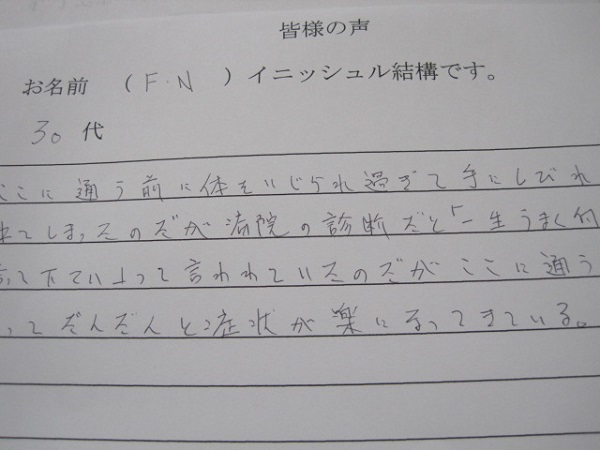 皆様の声
お名前 (F.N )イニッシュル結構です。
30代
ここに通う前に体をいじられ過ぎて手にしびれ
出てしまったのだが病院の診断だと「一生うまく付
って下さい」って言われていたのだがここに通う
ってだんだんと症状が楽になってきている。